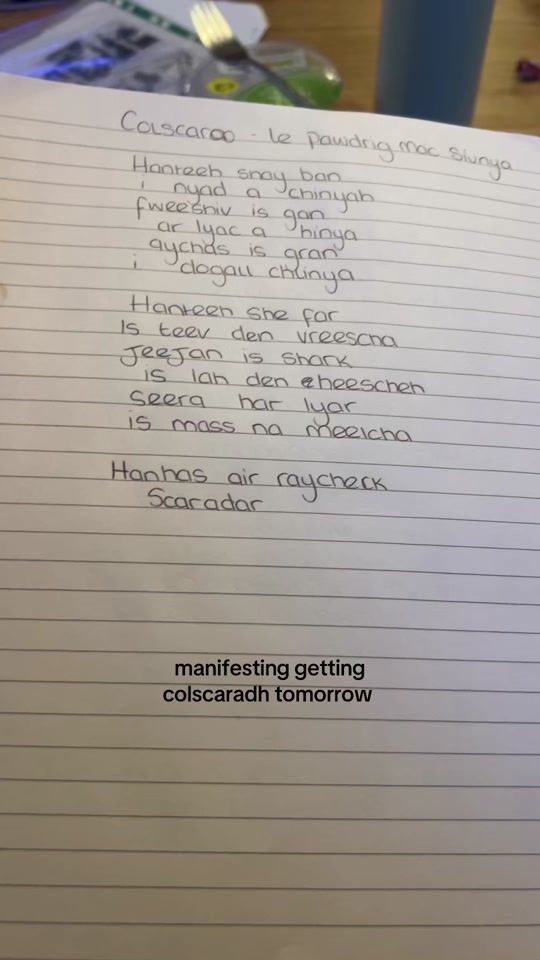 Colscaroo - le pawdrig mac siunya
Hanteeh snay ban
i nyad a chinyah
fweesniv is gan
ar lyac a hinya
aychas is gran
i dogau chunya
Hanteeh she far
Is teev den vreescha
JeeJan is shark
is lan den cheeschen
Seera har lyar
is mass na meelcha
Hanhas air raycheck
Scaradar
manifesting getting
colscaradh tomorrow